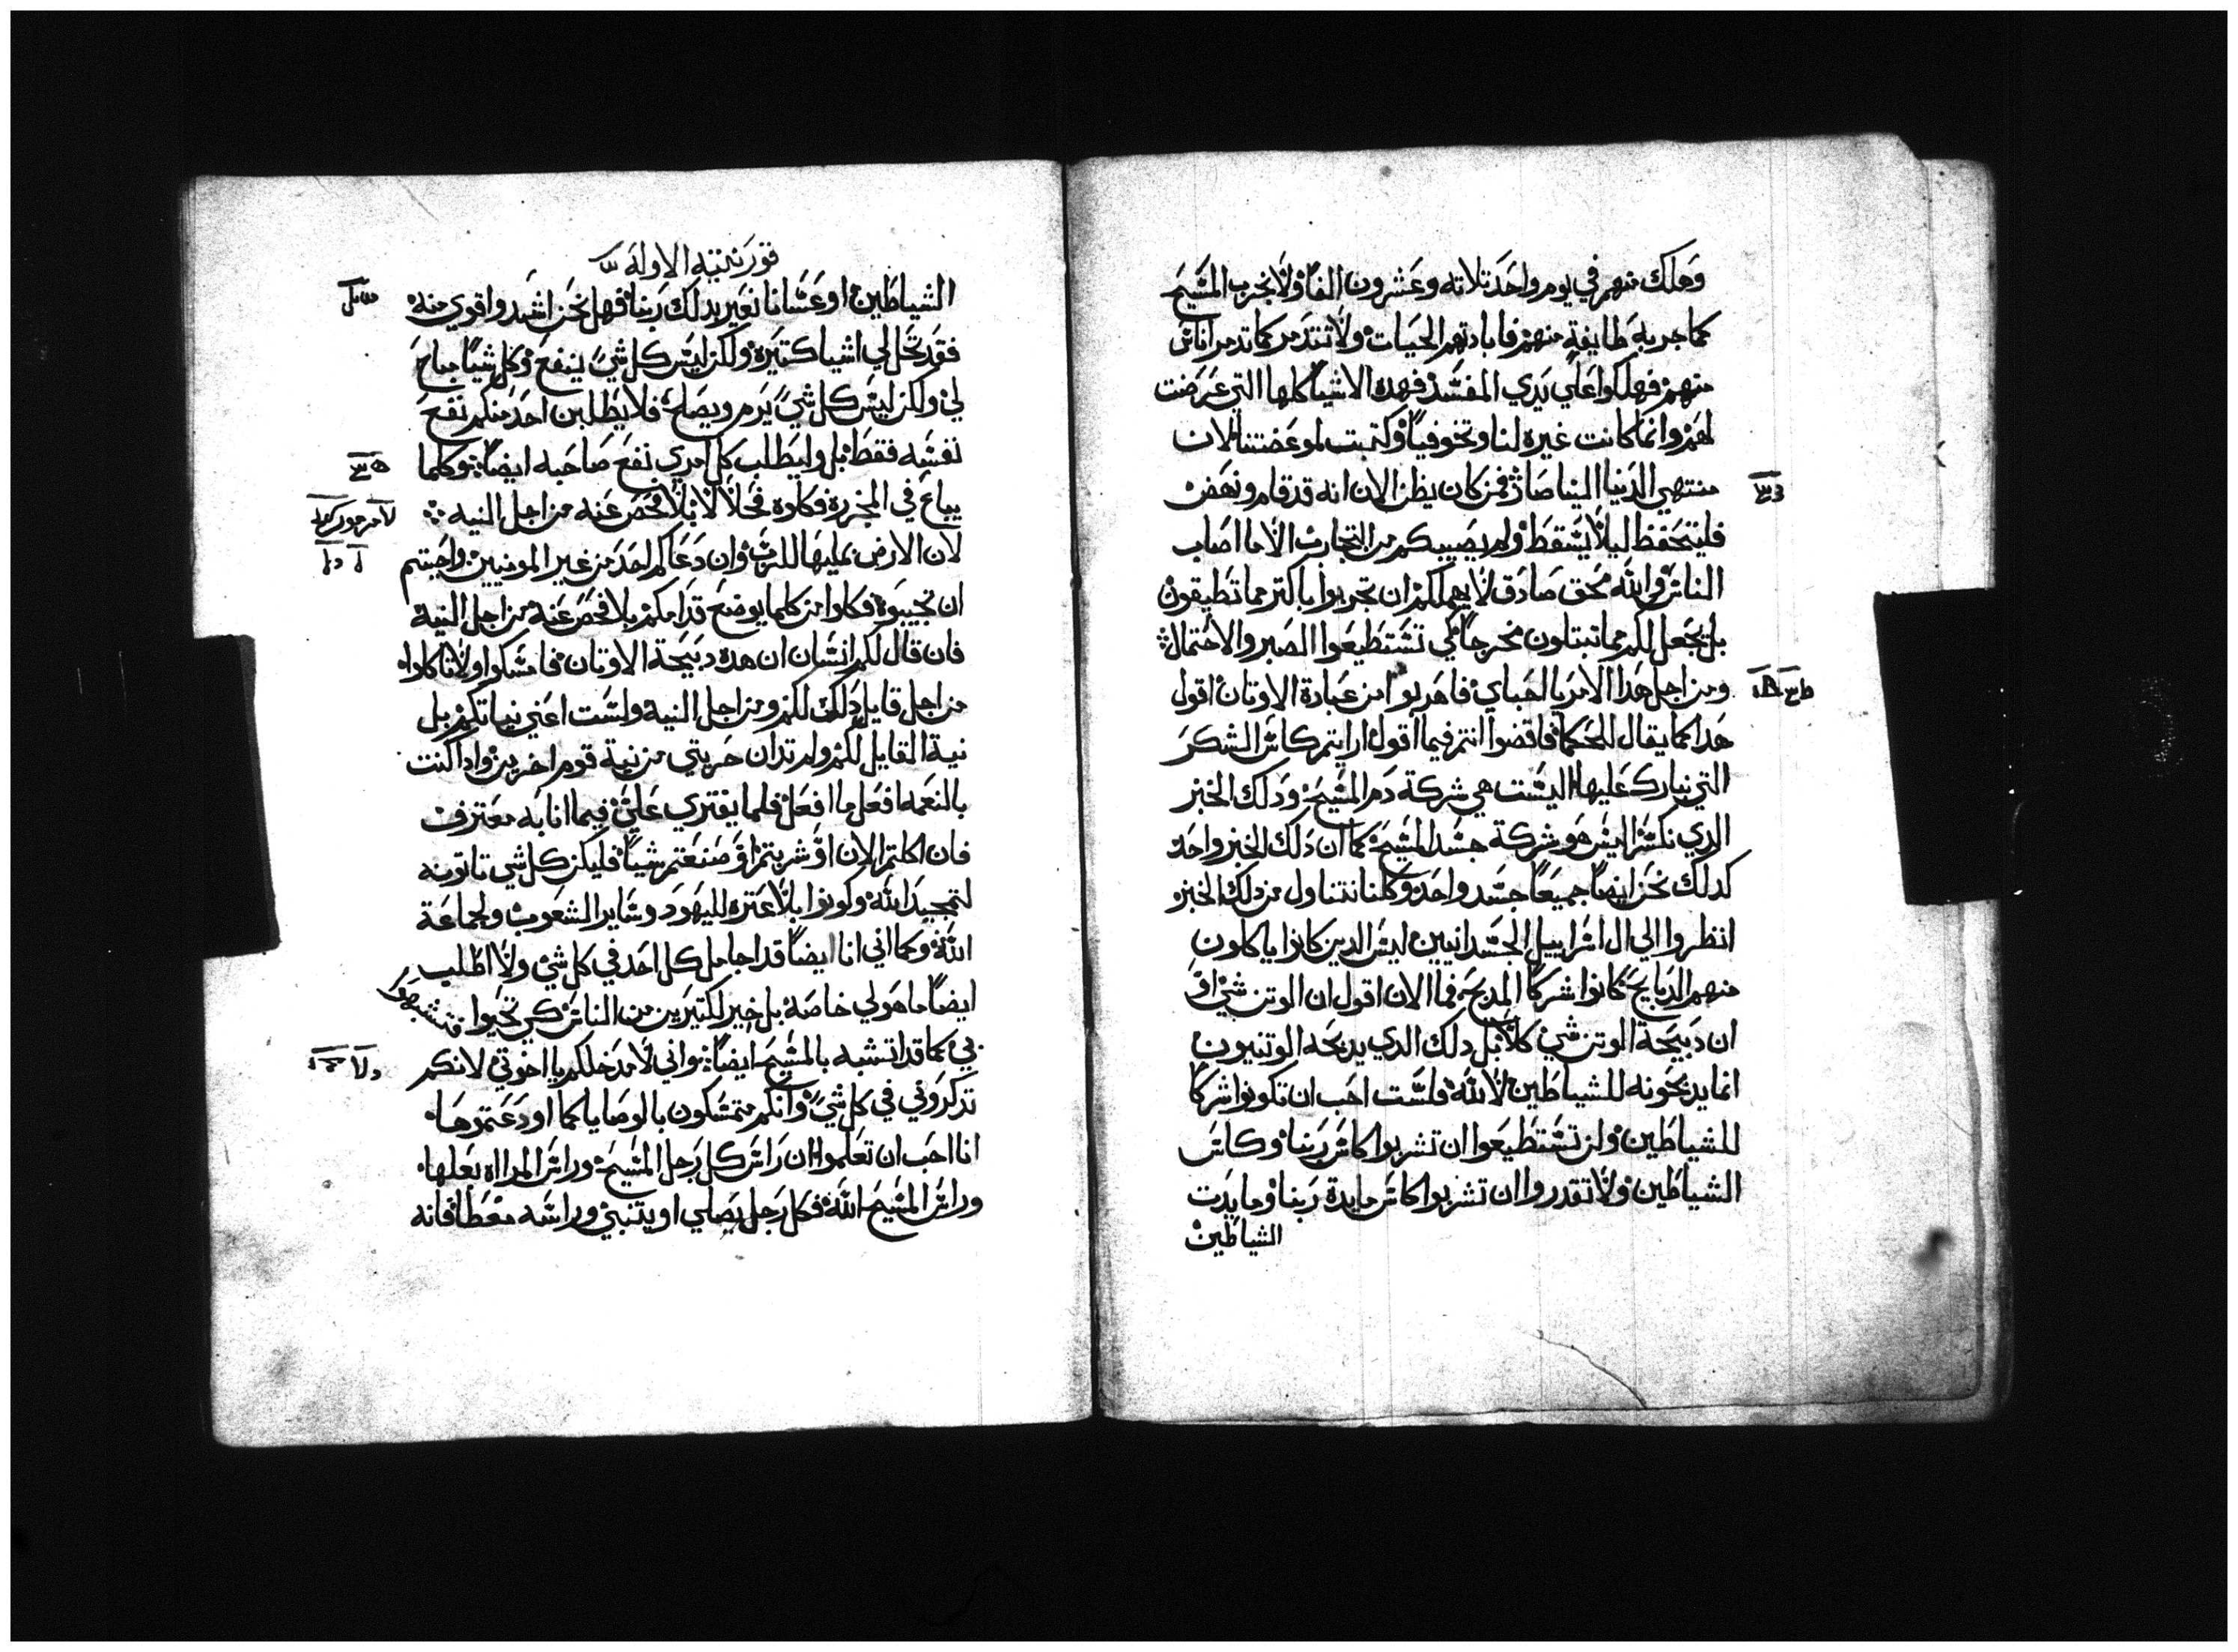 وهلك منهم في يوم واحد تلاته وعشرون الفا ولا نجرب المسيح
كما جربه طايفة منهم فابادتهم الحيات ولا نتدمر كما تدمر اناس
منهم فهلكوا علي يدي المفسد فهده الاشيا كلها التي عرضت
لهم وانما كانت غيره لنا وتخوفيا وكتبت لموعضتنا لان
منتهي الدنيا الينا صار فمن كان يظن الان انه قد قام ونهض
فليتحفظ ليلا يسقط ولم يصيبكم من التجارب الا ما اصاب
الناس والله محق صادق لا يهملكم ان تجربوا باكتر مما تطيقون
بل يجعل لكم مما تبتلون مخرجا لكي تستطيعوا الصبر والاحتمال
ومن اجل هدا الامر يا احباي فاهربوا من عبادة الاوتان اقول
هدا كما يقال للحكما فاقضوا انتم فيما اقول ارايتم كاس الشكر
التي نبارك عليها اليست هي شركة دم المسيح ودلك الخبز
الدي نكسر اليس هو شركة جسد المسيح كما ان دلك الخبز واحد
كدلك نحن ايضا جميعا جسد واحد وكلنا نتناول من دلك الخبز
انظروا الي ال اسراييل الجسدانيين اليس الدين كانوا ياكلون
منهم الدبايح كانوا شركا المدبح فما الان اقول ان الوتن شي او
ان دبيحة الوتن شي كلا بل دلك الدي يدبحه الوتنيون
انما يدبحونه للشياطين لا لله فلست احب ان تكونوا شركا
للشياطين ولن تستطيعوا ان تشربوا كاس ربنا وكاس
الشياطين ولا تقدروا ان تشربوا كاس مايدة ربنا ومايدت
الشياطين
قورنتيه الاوله
الشياطين او عسانا نغير بدلك ربنا فهل نحن اشد واقوي منه
فقد تحل لي اشيا كتيره ولكن ليس كل شي ينفع وكل شيا مباح
لي ولكن ليس كل شي يرم ويصلح فلا يطلبن احد منكم نفع
نفسه فقط بل وليطلب كل امري نفع صاحبه ايضا وكلما
يباع في المجزره فكلوه حلالا بلا فحص عنه من اجل النيه
لان الارض بمليها للرب وان دعاكم احد من غير المومنيين واحببتم
ان تجيبوه فكلوا من كلما يوضع قدامكم بلا فحص عنه من اجل النية
فان قال لكم انسان ان هده دبيحة الاوتان فامسكوا ولا تاكلوا
من اجل قايل دلك لكم ومن اجل النية ولست اعني نياتكم بل
نية القايل لكم ولم تدان حريتي من نية قوم اخرين وادا كنت
بالنعمه افعل ما افعل فلما يفتري علي فيما انا به معترف
فان اكلتم الان او شربتم او صنعتم شيا فليكن كل شي تاتونه
لتمجيد الله وكونوا بلا عتره لليهود وساير الشعوب ولجماعة
الله وكما اني انا ايضا قد اجامل كل احد في كل شي ولا اطلب
ايضا ما هو لي خاصة بل خير لكتيرين من الناس كي تحيوا فتشبهوا
بي كما قد اتشبه بالمسيح ايضا واني لامدحكم يا اخوتي لانكم
تدكروني في كل شي وانكم متمسكون بالوصايا كما اودعتموها
انا احب ان تعلموا ان راس كل رجل المسيح وراس المراه بعلها
وراس المسيح الله فكل رجل يصلي او يتنبي وراسه مغطا فانه